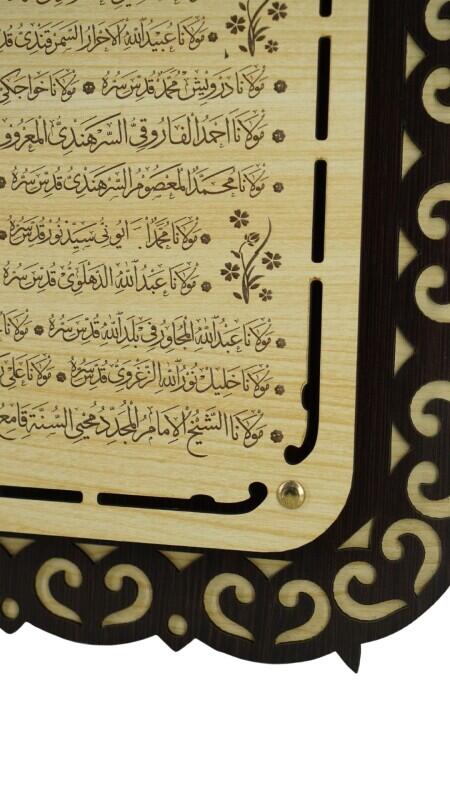 مَوْلَانَا عُبَيْدُ اللهِ الْاَحْرَارُ السَّمَرْقَنْدِىُّ
مَوْلَانَا دَرْوِيشْ مُحَمَّدْ قُدِّسَ سِرُّهُ مَوْلَانَا خَوَاجَكِى
مَوْلَانَا اَحْمَدُ الْفَارُوقِىُّ السَّرْهَنْدِىُّ الْمَعْرُوفُ
مَوْلَانَا مُحَمَّدُ الْمَعْصُومُ السَّرْهَنْدِىُّ قُدِّسَ سِرُّهُ
مَوْلَانَا مُحَمَّدْ نُورْ قُدِّسَ سِرُّهُ
مَوْلَانَا عَبْدُ اللهِ الدَّهْلَوِىُّ قُدِّسَ سِرُّهُ
مَوْلَانَا عَبْدُ اللهِ الْمُجَاوِرُ فِى بَلَدِ اللهِ قُدِّسَ سِرُّهُ مَوْلَانَا
مَوْلَانَا خَلِيلْ نُورُ اللهِ الزَّغْرَوِىُّ قُدِّسَ سِرُّهُ مَوْلَانَا عَلِى
مَوْلَانَا الشَّيْخُ الْاِمَامُ الْمُجَدِّدُ مُحْيِى السُّنَّةِ قَامِعُ